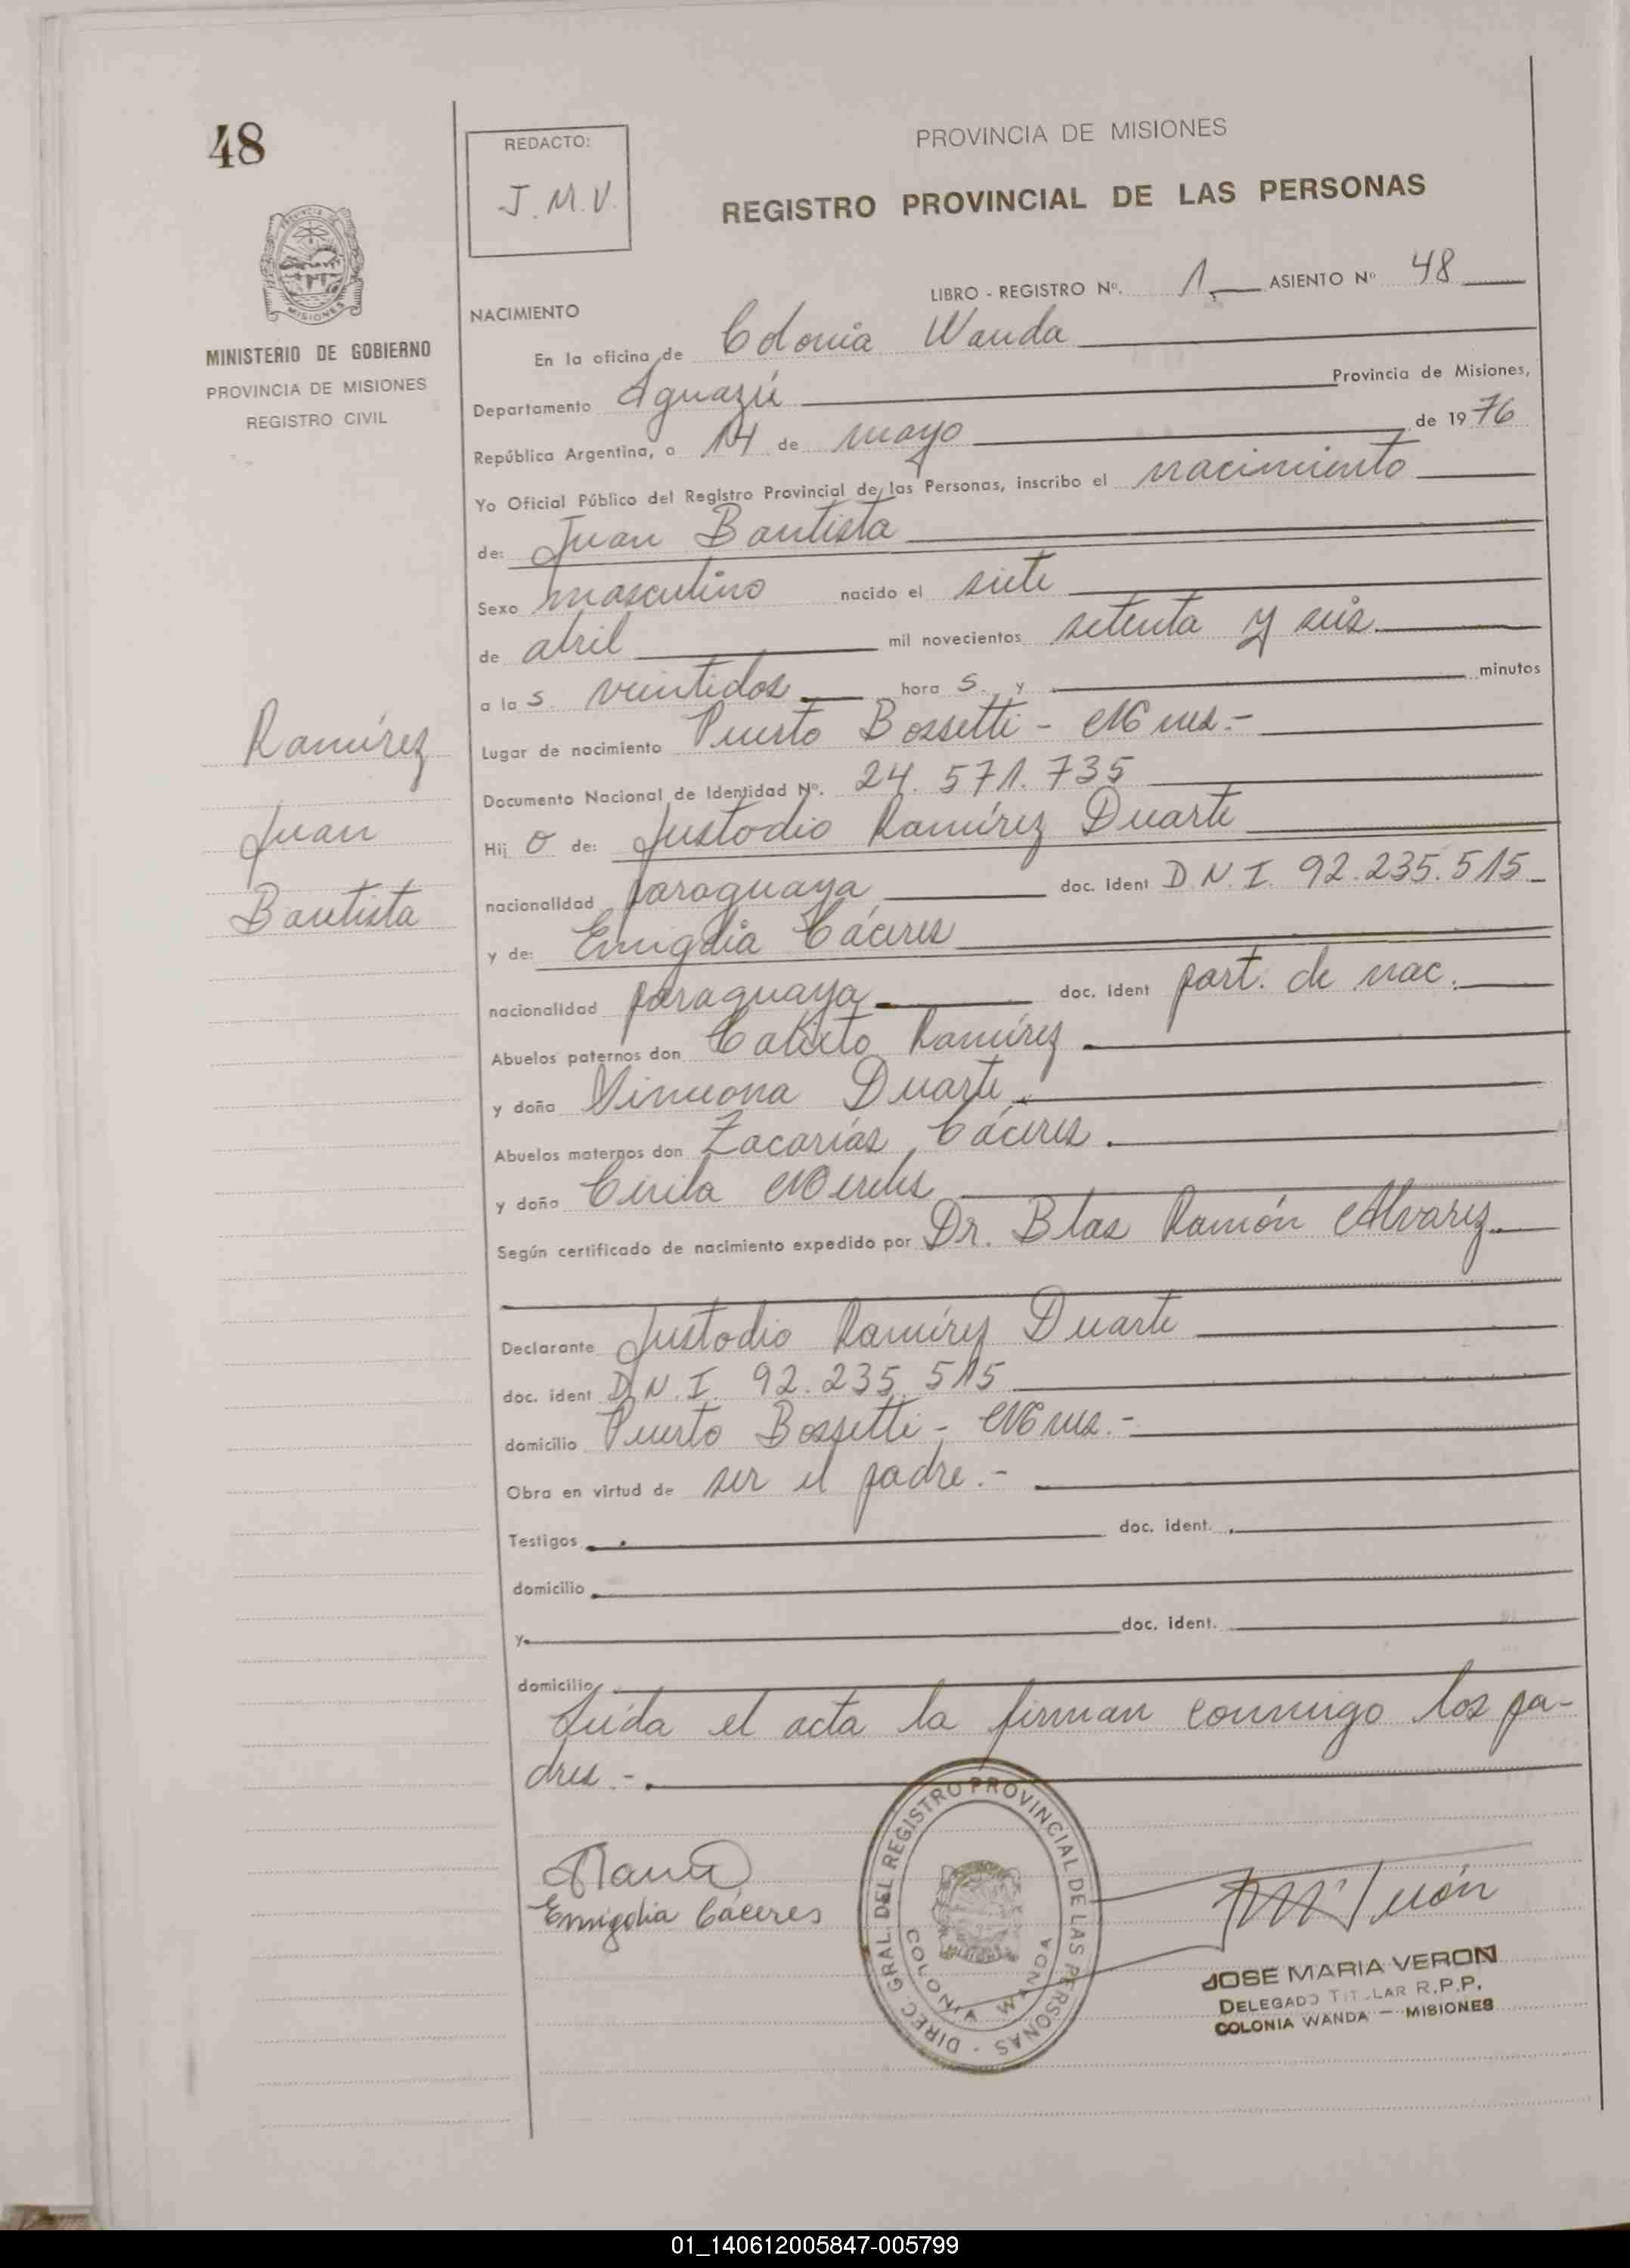 48
REDACTO:
J.M.V.
PROVINCIA DE MISIONES
REGISTRO PROVINCIAL DE LAS PERSONAS
MISIONES
MINISTERIO DE GOBIERNO
PROVINCIA DE MISIONES
REGISTRO CIVIL
LIBRO - REGISTRO Nº. 1 ASIENTO Nº 48
NACIMIENTO
En la oficina de Colonia Wanda
Departamento Iguazú Provincia de Misiones,
República Argentina, a 14 de mayo de 1976
Yo Oficial Público del Registro Provincial de las Personas, inscribo el nacimiento
de: Juan Bautista
Sexo masculino nacido el siete
de abril mil novecientos setenta y seis
a la s veintidos hora s. y minutos
Lugar de nacimiento Puerto Bossetti - Mnes.-
Documento Nacional de Identidad Nº. 24.571.735
Hij o de: Justodio Ramírez Duarte
nacionalidad paraguaya doc. ident D.N.I. 92.235.515
y de: Emigdia Cáceres
nacionalidad paraguaya doc. ident part. de nac.
Abuelos paternos don Calixto Ramírez
y doña Simeona Duarte
Abuelos maternos don Zacarías Cáceres
y doña Cirila
Según certificado de nacimiento expedido por Dr. Blas Ramón Alvarez
Declarante Justodio Ramírez Duarte
doc. ident D.N.I. 92.235.515
domicilio Puerto Bossetti - Mnes.-
Obra en virtud de ser el padre.-
Testigos doc. ident.
domicilio
y doc. ident.
domicilio
Leída el acta la firman conmigo los pa-
dres.-
Ramírez
Juan
Bautista
Emigdia Cáceres
DIREC. GRAL. DEL REGISTRO PROVINCIAL DE LAS PERSONAS
COLONIA WANDA
JOSE MARIA VERON
DELEGADO TITULAR R.P.P.
COLONIA WANDA - MISIONES
01_140612005847-005799